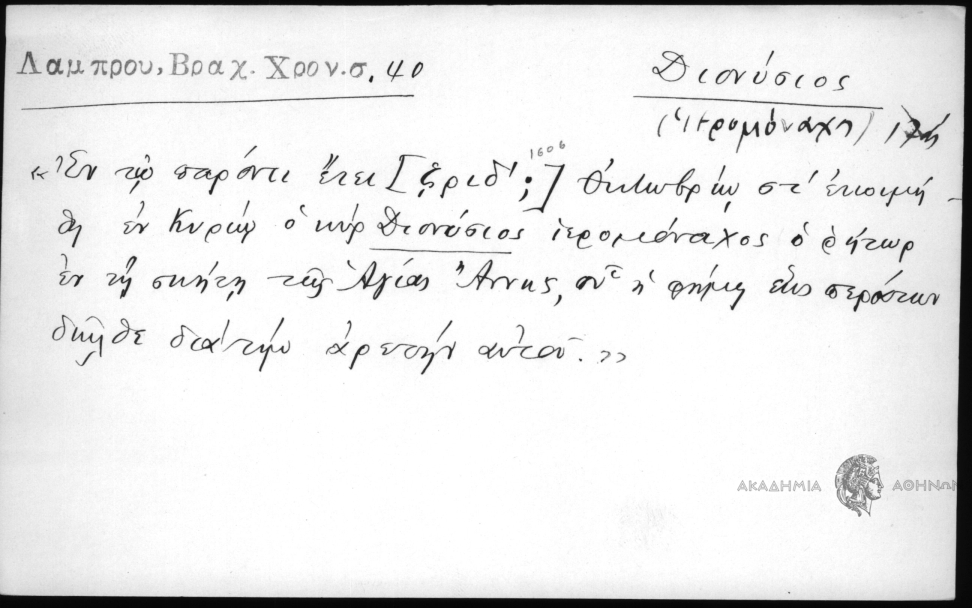 Λαμπρου, Βραχ. Χρον. σ. 40
Διονύσιος
(ἱερομόναχος)
«Ἐν τῷ παρόντι ἔτει [ζριδ';] Ὀκτωβρίῳ στ' ἐκοιμή-
1606
θη ἐν Κυρίῳ ὁ κύρ Διονύσιος ἱερομόναχος ὁ ῥήτωρ
ἐν τῇ σκήτῃ τῆς Ἁγίας Ἄννης, οὗ ἡ φήμη εἰς περάτων
διῆλθε διά τήν ἀρετήν αὐτοῦ.»
ΑΚΑΔΗΜΙΑ ΑΘΗΝΩΝ